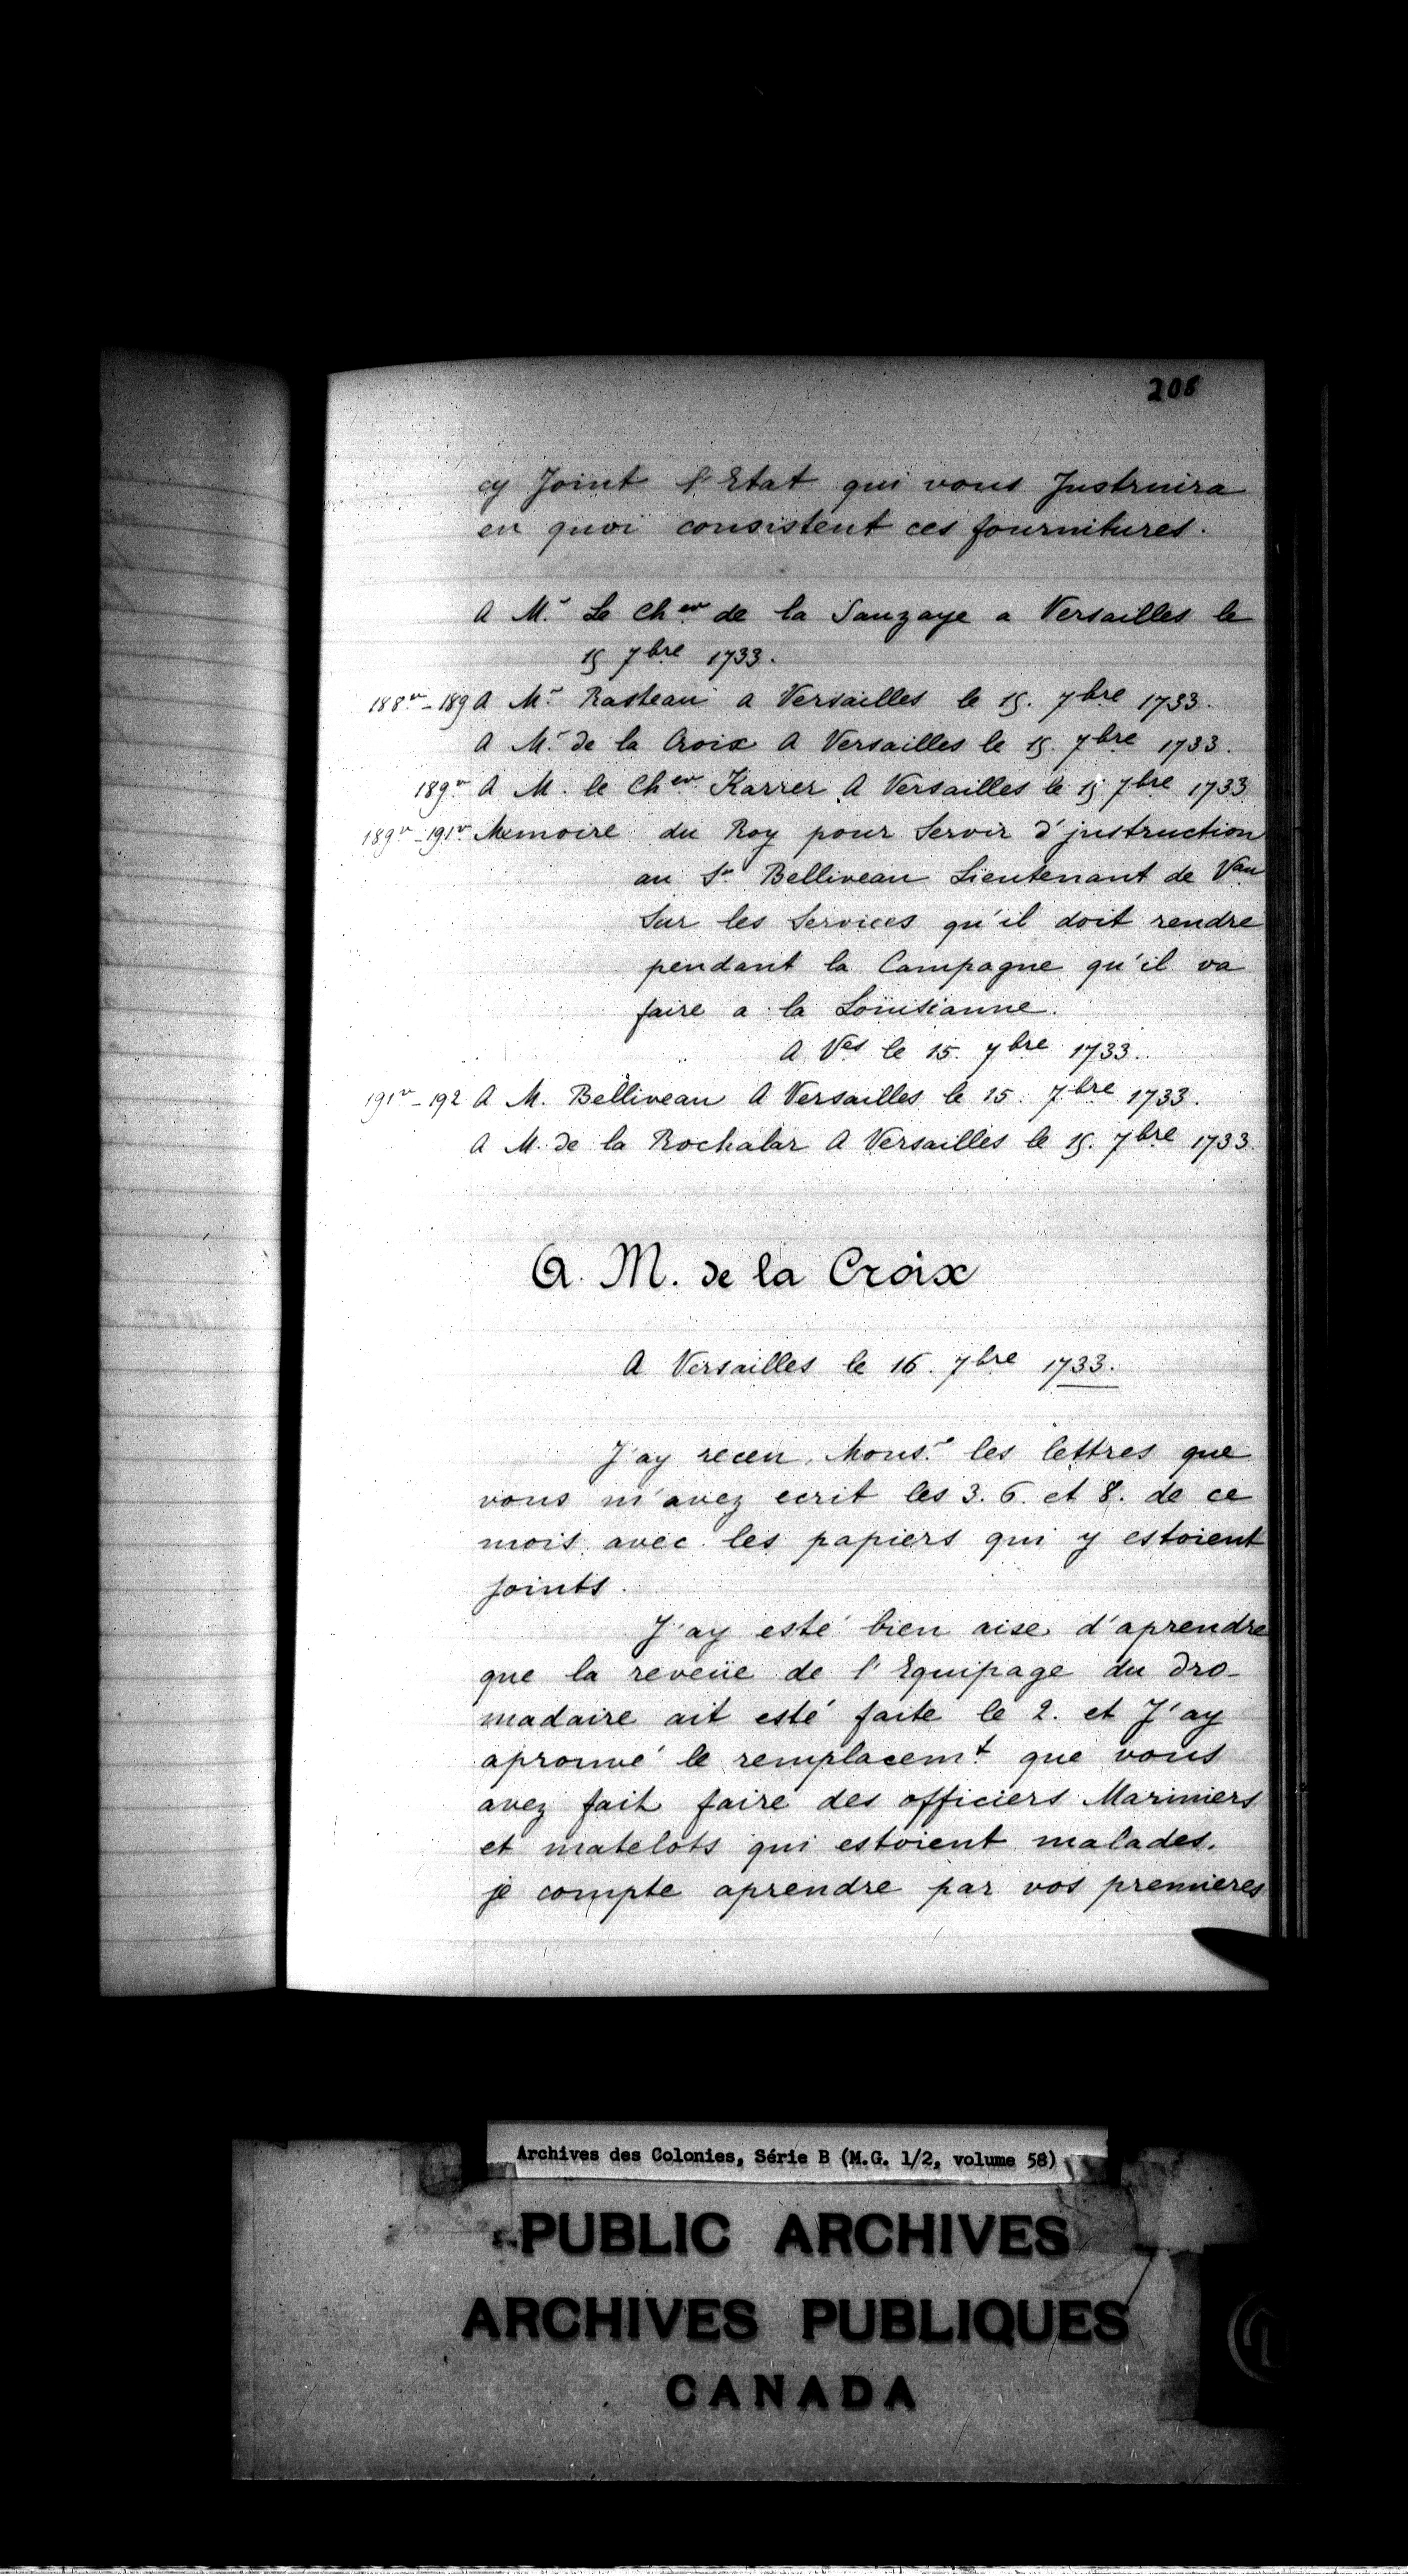 208
cy Joint l'Etat qui vous Instruira
en quoi consistent ces fournitures.
A Mr. Le Cher de la Sauzaye a Versailles le
15 7bre 1733.
188v-189 A Mr. Rasteau a Versailles le 15. 7bre 1733.
A Mr. de la Croix A Versailles le 15. 7bre 1733.
189v A M. le Cher Karrer A Versailles le 15 7bre 1733
189v-191v Memoire du Roy pour Servir d'jnstruction
au Sr Belliveau Lieutenant de Vau
Sur les Services qu'il doit rendre
pendant la Campagne qu'il va
faire a la Loüisianne.
A Ves le 15. 7bre 1733.
191v-192 A M. Belliveau A Versailles le 15. 7bre 1733.
A M. de la Rochalar A Versailles le 15. 7bre 1733.
A. M. de la Croix
A Versailles le 16. 7bre 1733.
J'ay receu, Monsr. les lettres que
vous m'avez ecrit les 3. 6. et 8. de ce
mois avec les papiers qui y estoient
joints.
J'ay esté bien aise d'aprendre
que la reveüe de l'Equipage du Dro-
madaire ait esté faite le 2. et J'ay
aprouvé le remplacemt que vous
avez fait faire des officiers Mariniers
et matelots qui estoient malades.
je compte aprendre par vos premieres
Archives des Colonies, Série B (M.G. 1/2, volume 58)
PUBLIC ARCHIVES
ARCHIVES PUBLIQUES
CANADA